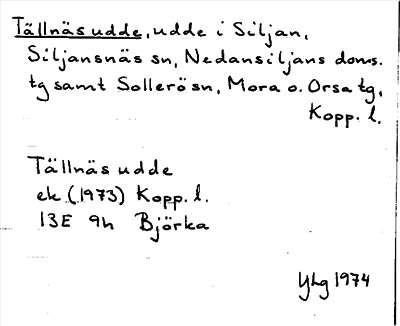 Tällnäs udde, udde i Siljan,
Siljansnäs sn, Nedansiljans doms.
tg samt Sollerö sn, Mora o. Orsa tg,
Kopp. l.
Tällnäs udde
ek. (1973) Kopp. l.
13E 9h Björka
Yhg 1974